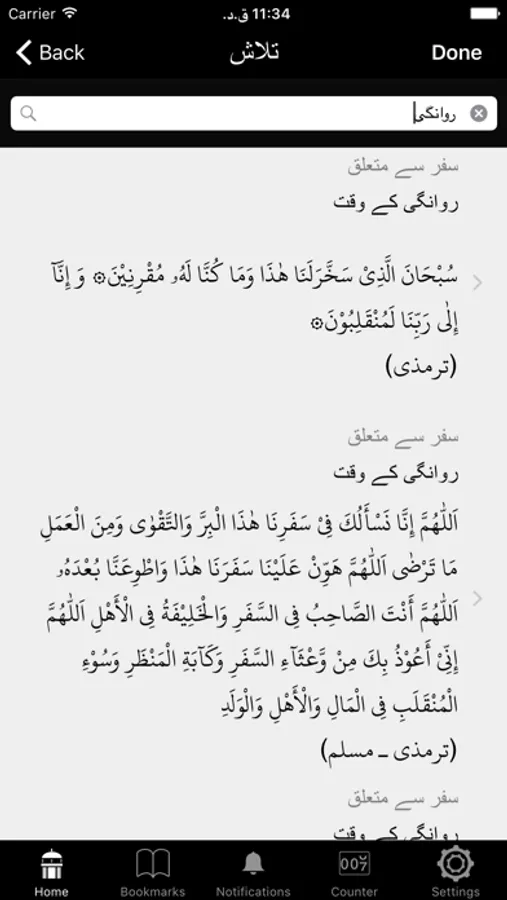 Carrier 11:34 ق.د.
Back تلاش Done
روانگی
سفر سے متعلق
روانگی کے وقت
سُبْحَانَ الَّذِیْ سَخَّرَلَنَا هٰذَا وَمَا كُنَّا لَهُۥ مُقْرِنِيْنَ۞ وَ إِنَّآ
إِلٰى رَبِّنَا لَمُنْقَلِبُوْنَ۞
(ترمذی)
سفر سے متعلق
روانگی کے وقت
اَللّٰهُمَّ إِنَّا نَسْأَلُكَ فِيْ سَفَرِنَا هٰذَا الْبِرَّ وَالتَّقْوٰى وَمِنَ الْعَمَلِ
مَا تَرْضٰى اَللّٰهُمَّ هَوِّنْ عَلَيْنَا سَفَرَنَا هٰذَا وَاطْوِعَنَّا بُعْدَهُۥ
اَللّٰهُمَّ أَنْتَ الصَّاحِبُ فِي السَّفَرِ وَالْخَلِيْفَةُ فِي الْأَهْلِ اَللّٰهُمَّ
إِنِّيْ أَعُوْذُ بِكَ مِنْ وَّعْثَآءِ السَّفَرِ وَكَآبَةِ الْمَنْظَرِ وَسُوْءِ
الْمُنْقَلَبِ فِي الْمَالِ وَالْأَهْلِ وَالْوَلَدِ
(ترمذی ـ مسلم)
سفر سے متعلق
روانگی کے وقت
Home Bookmarks Notifications 007 Counter Settings